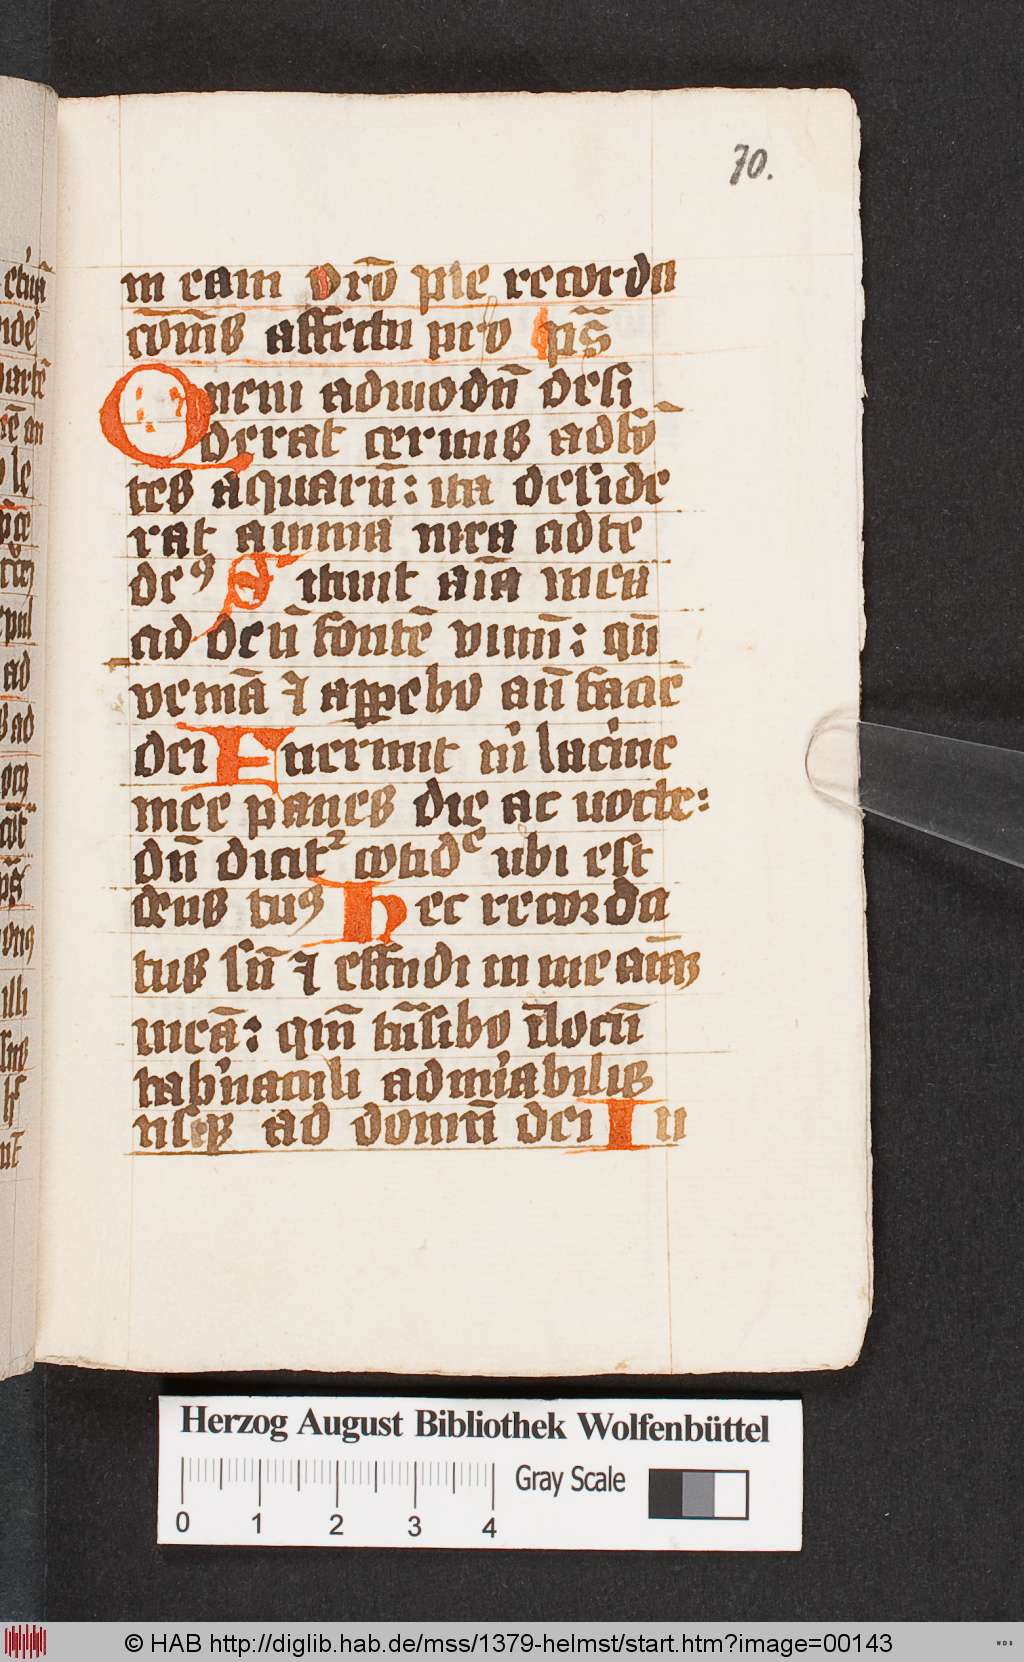 70.
in eam orō pie recorda
cōnis affectu pro pš
Quem admodū desi
derat cervus ad fō
tes aquarū: ita deside
rat anima mea ad te
deꝰ Sitivit aīa mea
ad deū fontē vivū: qn̄
veniā ⁊ apꝑebo an̄ faciē
dei Fuerunt m' lac'me
mee panes die ac nocte:
dū dicit² cotidᵉ ubi est
deus tuꝰ Hec recorda
tus sū ⁊ effudi in me aīam
meā: qm̄ tn̄sibo ī locū
tab'naculi admi'abilis
usqꝫ ad domū dei In
Herzog August Bibliothek Wolfenbüttel
Gray Scale
0 1 2 3 4
© HAB http://diglib.hab.de/mss/1379-helmst/start.htm?image=00143